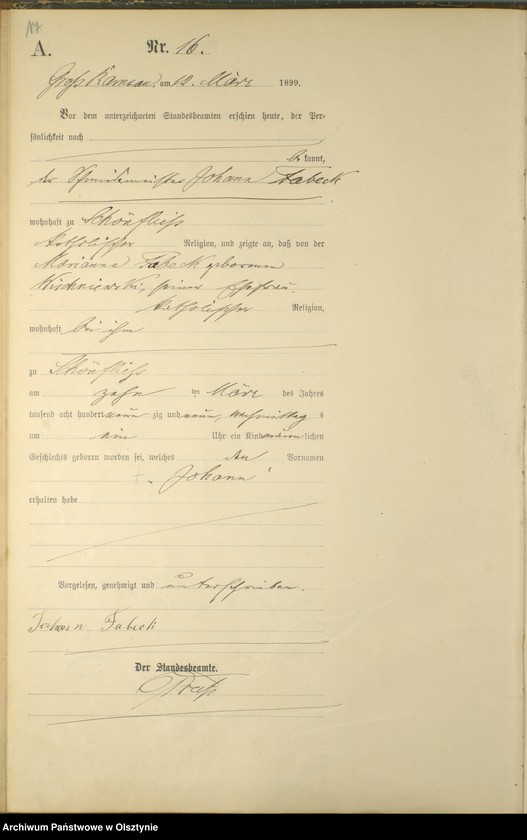 A.
Nr. 16.
Groß Ramsau, am 12. März 1899.
Vor dem unterzeichneten Standesbeamten erschien heute, der Per-
sönlichkeit nach
be kannt,
der Schmiedemeister Johann Fabeck
wohnhaft zu Schönfließ
katholischer Religion, und zeigte an, daß von der
Marianna Fabeck geborenen
seiner Ehefrau,
katholischer Religion,
wohnhaft bei ihm
zu Schönfließ
am zehn ten März des Jahres
tausend acht hundert neun zig und neun, Nachmittag s
um ein Uhr ein Kind männ lichen
Geschlechts geboren worden sei, welches den Vornamen
„Johann“
erhalten habe
Vorgelesen, genehmigt und unterschrieben.
Johann Fabeck
Der Standesbeamte.
Archiwum Państwowe w Olsztynie